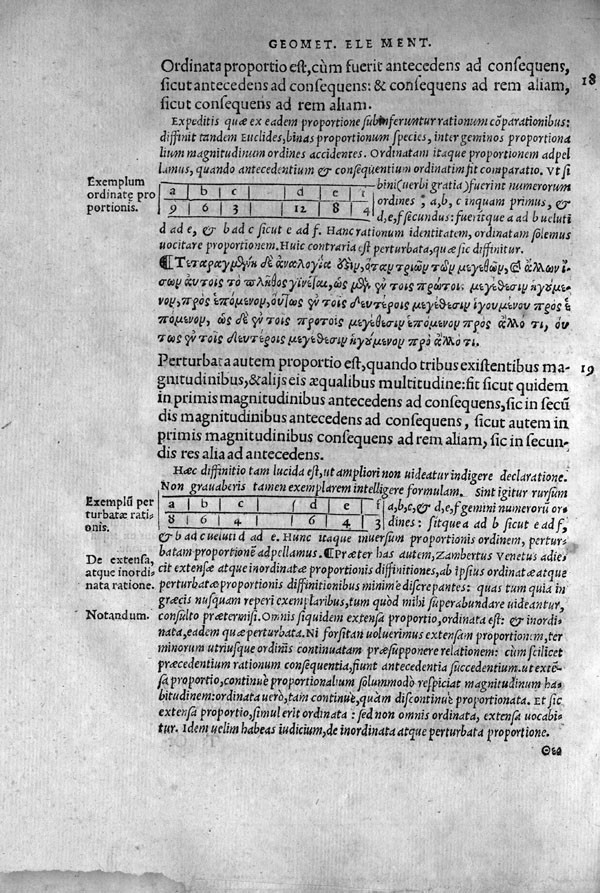 GEOMET. ELEMENT.
Ordinata proportio est, cùm fuerit antecedens ad consequens,
sicut antecedens ad consequens: & consequens ad rem aliam,
18
sicut consequens ad rem aliam.
Expeditis quæ ex eadem proportione subinferuntur rationum cõparationibus:
diffinit tandem Euclides, binas proportionum species, inter geminos proportiona
lium magnitudinum ordines accidentes. Ordinatam itaque proportionem adpel
lamus, quando antecedentium & consequentium ordinatim fit comparatio. Vt si
Exemplum
ordinatę pro
portionis.
a | b | c | | d | e | f
9 | 6 | 3 | | 12 | 8 | 4
bini (uerbi gratia) fuerint numerorum
ordines ; a, b, c inquam primus, &
d, e, f secundus: fueritque a ad b ueluti
d ad e, & b ad c sicut e ad f. Hanc rationum identitatem, ordinatam solemus
uocitare proportionem. Huic contraria est perturbata, quæ sic diffinitur.
¶ Τεταραγμένη δὲ ἀναλογία ἐστὶν, ὅταν τριῶν τῶν μεγεθῶν, καὶ ἄλλων ἴ-
σων αὐτοῖς τὸ πλῆθος γίνεται, ὡς μὲν ἐν τοῖς πρώτοις μεγέθεσιν ἡγούμε-
νον, πρὸς ἑπόμενον, οὕτως ἐν τοῖς δευτέροις μεγέθεσιν ἡγουμένον πρὸς ἑ-
πόμενον, ὡς δὲ ἐν τοῖς προτοις μεγέθεσιν ἑπόμενον πρὸς ἄλλο τι, οὕ
τως ἐν τοῖς δευτέροις μεγέθεσιν ἡγούμενον πρὸ ἄλλο τι.
Perturbata autem proportio est, quando tribus existentibus ma-
19
gnitudinibus, & alijs eis æqualibus multitudine: fit sicut quidem
in primis magnitudinibus antecedens ad consequens, sic in secũ
dis magnitudinibus antecedens ad consequens, sicut autem in
primis magnitudinibus consequens ad rem aliam, sic in secun-
dis res alia ad antecedens.
Hæc diffinitio tam lucida est, ut ampliori non uideatur indigere declaratione.
Non grauaberis tamen exemplarem intelligere formulam. Sint igitur rursùm
Exemplũ per
turbatæ rati-
onis.
a | b | c | | d | e | f
8 | 6 | 4 | | 6 | 4 | 3
a, b, c, & d, e, f gemini numerorũ or-
dines: sitque a ad b sicut e ad f,
& b ad c ueluti d ad e. Hunc itaque inuersum proportionis ordinem, pertur-
batam proportionẽ adpellamus. ¶ Præter has autem, Zambertus Venetus adie-
De extensa,
atque inordi-
nata ratione.
cit extensæ atque inordinatæ proportionis diffinitiones, ab ipsius ordinatæ atque
perturbatæ proportionis diffinitionibus minimè discrepantes: quas tum quia in
græcis nusquam reperi exemplaribus, tum quòd mihi superabundare uideantur,
Notandum.
consultò prætermisi. Omnis siquidem extensa proportio, ordinata est: & inordi-
nata, eadem quæ perturbata. Ni forsitan uoluerimus extensam proportionem, ter
minorum utriusque ordinis continuatam præsupponere relationem: cùm scilicet
præcedentium rationum consequentia, fiunt antecedentia succedentium. ut extẽ-
sa proportio, continuè proportionalium solummodò respiciat magnitudinum ha-
bitudinem: ordinata uerò, tam continuè, quàm discontinuè proportionata. Et sic
extensa proportio, simul erit ordinata: sed non omnis ordinata, extensa uocabi-
tur. Idem uelim habeas iudicium, de inordinata atque perturbata proportione.
Θεω